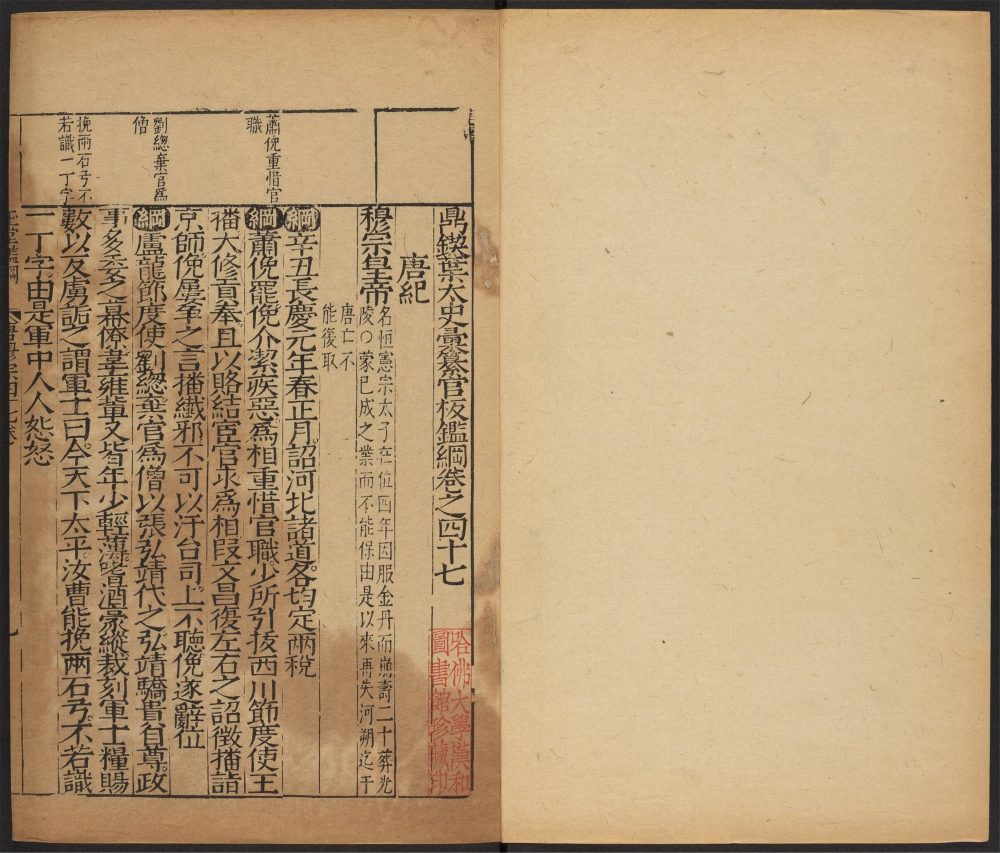 鼎鍥葉太史彙纂官板鑑綱卷之四十七
哈佛大學漢和
圖書館珍藏印
唐紀
穆宗皇帝
名恒憲宗太子在位四年因服金丹而崩壽二十葬光
陵○蒙已成之業而不能保由是以來再失河朔迄于
唐亡不
能復取
綱辛丑長慶元年春正月詔河北諸道各均定兩稅
蕭俛重惜官
職
綱蕭俛罷俛介潔疾惡爲相重惜官職少所引拔西川節度使王
播大修貢奉且以賂結宦官求爲相叚文昌復左右之詔徵播詣
京師俛屢争之言播纎邪不可以汙台司上不聽俛遂辭位
劉總棄官爲
僧
綱盧龍節度使劉總棄官爲僧以張弘靖代之弘靖驕貴自尊政
事多委之幕僚韋雍輩又皆年少輕薄嗜酒豪縱裁刻軍士糧賜
挽兩石弓不
若識一丁字
數以反虜詬之謂軍士曰今天下太平汝曹能挽兩石弓不若識
一丁字由是軍中人人怨怒